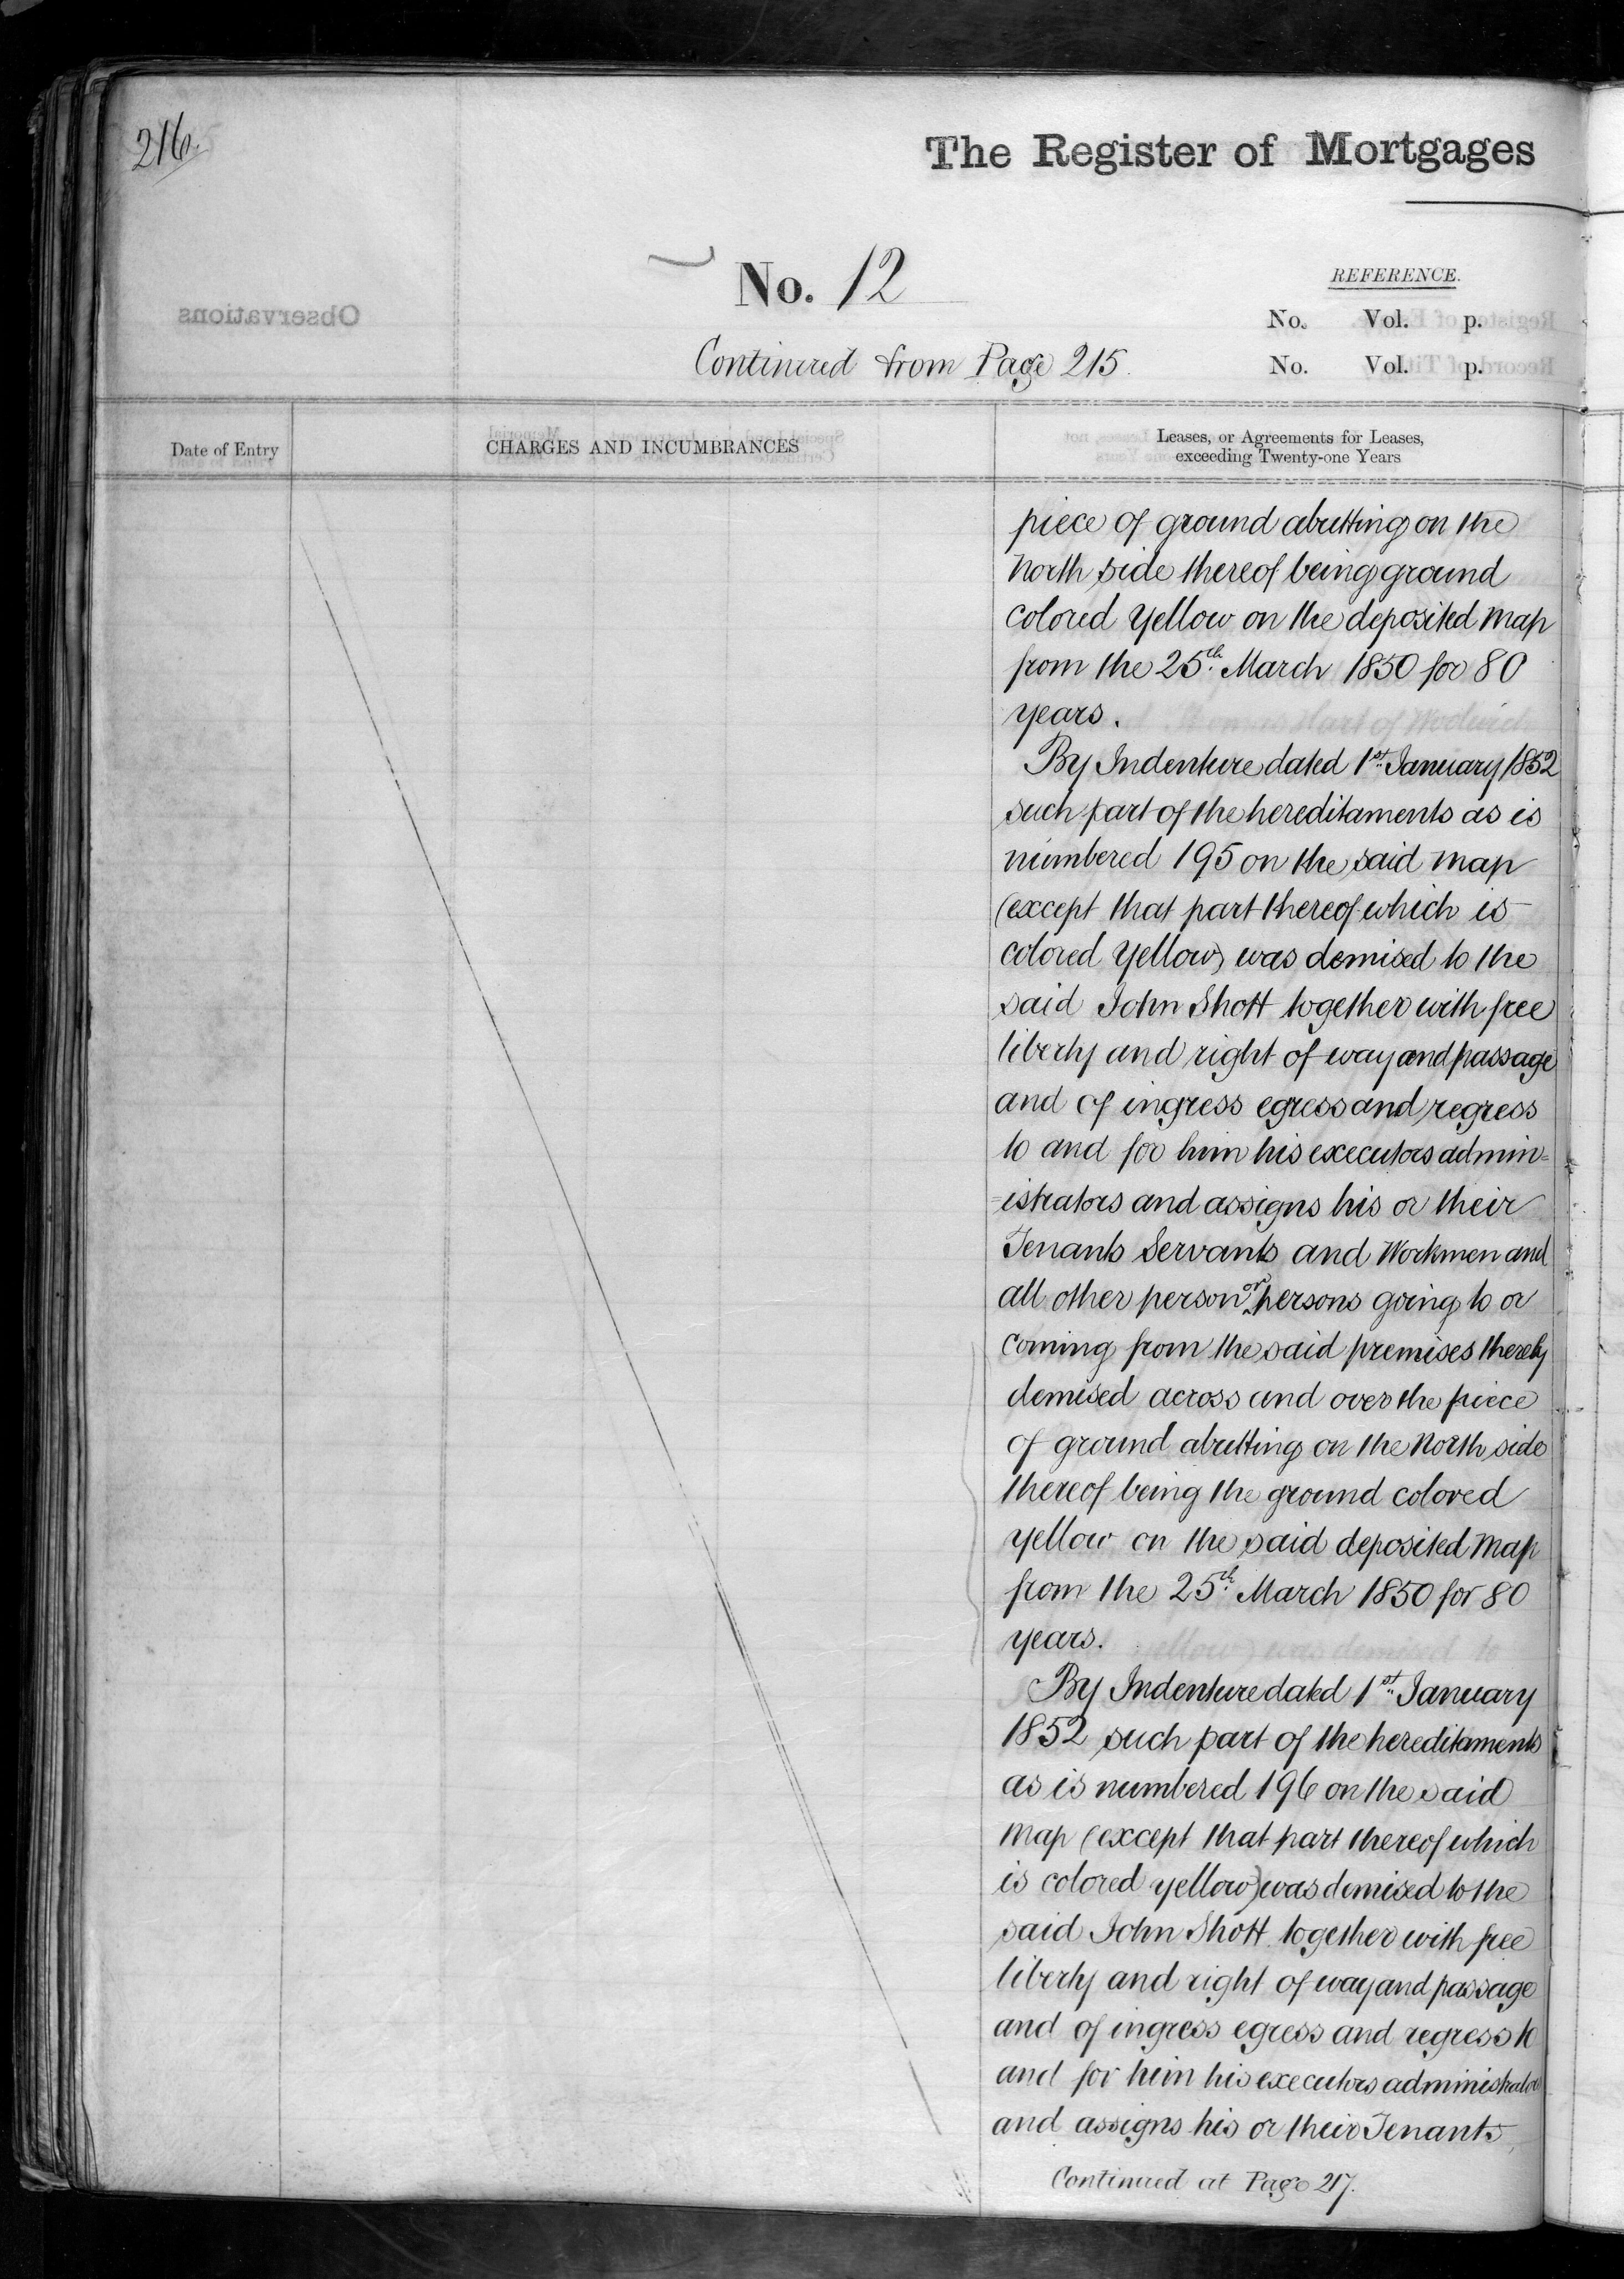 216.
The Register of Mortgages
No. 12
REFERENCE.
No. Vol. p.
Continued from Page 215.
No. Vol. p.
Date of Entry
CHARGES AND INCUMBRANCES
Leases, or Agreements for Leases,
exceeding Twenty-one Years
piece of ground abutting on the
North side thereof being ground
colored Yellow on the deposited Map
from the 25th March 1850 for 80
years.
By Indenture dated 1st January 1852
such part of the hereditaments as is
numbered 195 on the said map
(except that part thereof which is
colored Yellow) was demised to the
said John Shott together with free
liberty and right of way and passage
and of ingress egress and regress
to and for him his executors admin=
=istrators and assigns his or their
Tenants Servants and Workmen and
all other person or persons going to or
coming from the said premises thereby
demised across and over the piece
of ground abutting on the North side
thereof being the ground colored
yellow on the said deposited Map
from the 25th March 1850 for 80
years.
By Indenture dated 1st January
1852 such part of the hereditaments
as is numbered 196 on the said
Map (except that part thereof which
is colored yellow) was demised to the
said John Shott together with free
liberty and right of way and passage
and of ingress egress and regress to
and for him his executors administrators
and assigns his or their Tenants
Continued at Page 217.